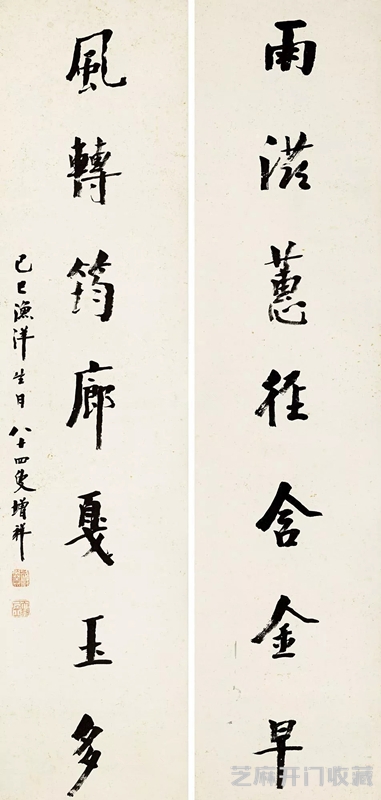 雨滋蕙徑含金早
風轉筠廊戛玉多
己巳漁洋生日八十四叟增祥
芝麻开门收藏